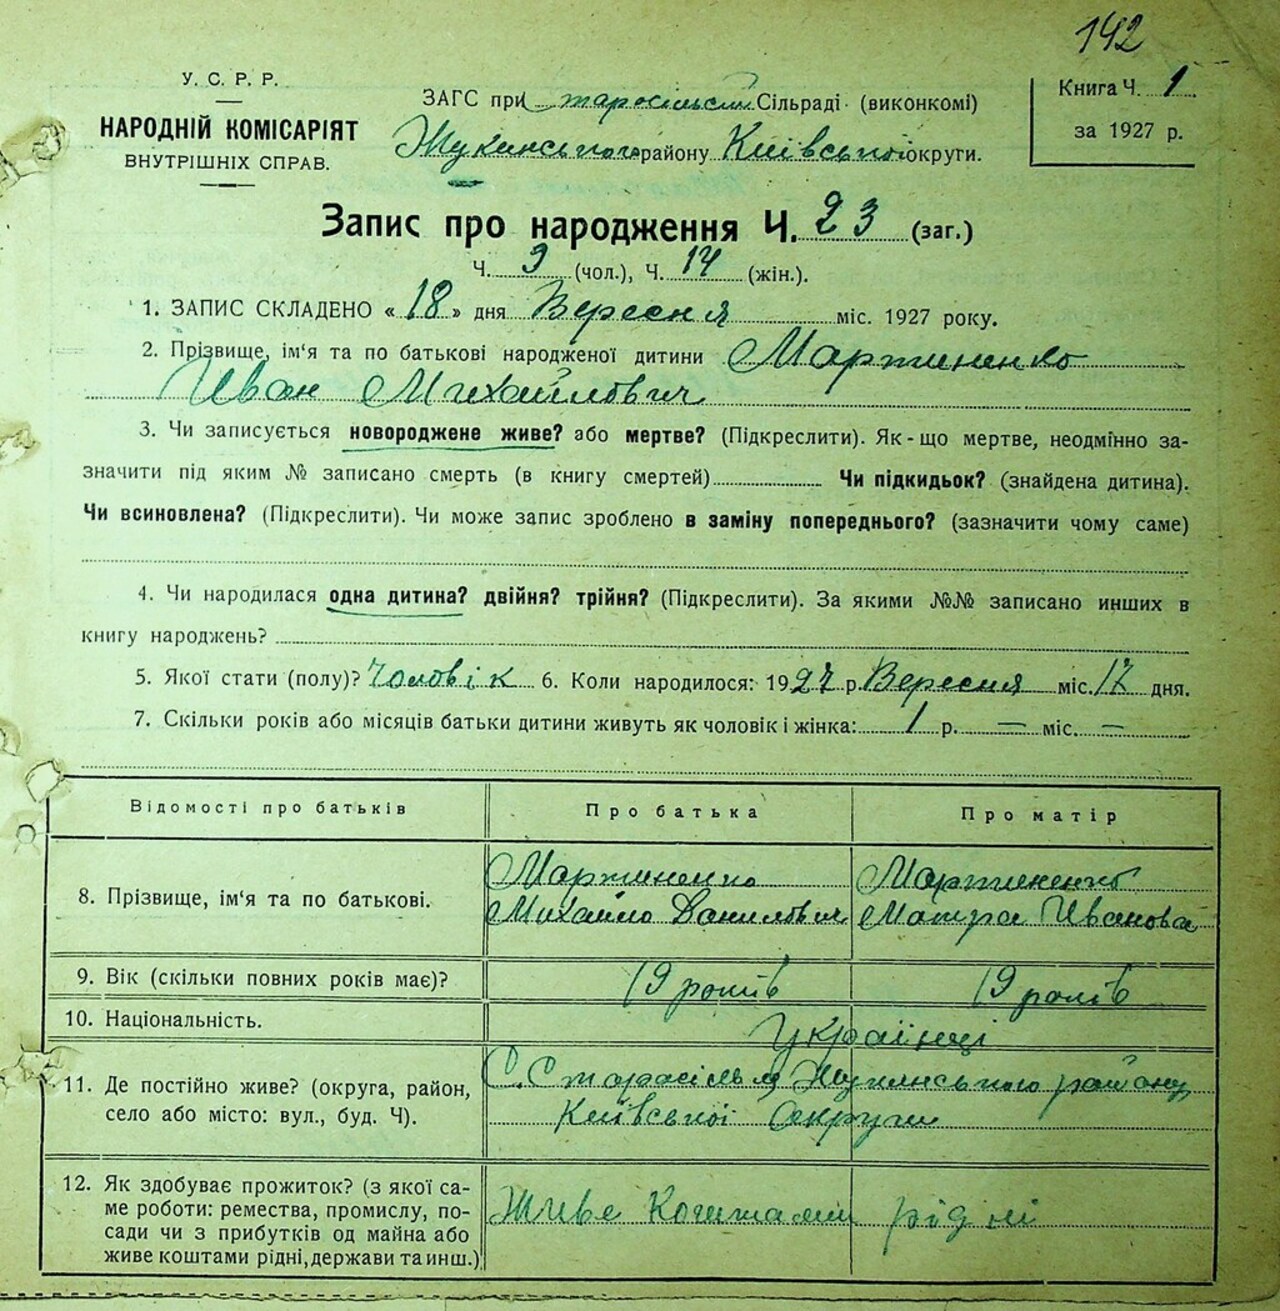 142
У. С. Р. Р.
НАРОДНІЙ КОМІСАРІЯТ
ВНУТРІШНІХ СПРАВ.
ЗАГС при Старосільській Сільраді (виконкомі)
Жукинського району Київської округи.
Книга Ч. 1
за 1927 р.
Запис про народження Ч. 23 (заг.)
Ч. 9 (чол.), Ч. 14 (жін.).
1. ЗАПИС СКЛАДЕНО « 18 » дня Вересня міс. 1927 року.
2. Прізвище, ім'я та по батькові народженої дитини Мартиненко
Иван Михайлович
3. Чи записується новороджене живе? або мертве? (Підкреслити). Як-що мертве, неодмінно за-
значити під яким № записано смерть (в книгу смертей) Чи підкидьок? (знайдена дитина).
Чи всиновлена? (Підкреслити). Чи може запис зроблено в заміну попереднього? (зазначити чому саме)
4. Чи народилася одна дитина? двійня? трійня? (Підкреслити). За якими №№ записано инших в
книгу народжень?
5. Якої стати (полу)? Чоловік 6. Коли народилося: 1927 р. Вересня міс. 17 дня.
7. Скільки років або місяців батьки дитини живуть як чоловік і жінка: 1 р. — міс. —
Відомості про батьків
Про батька
Про матір
8. Прізвище, ім'я та по батькові.
Мартиненко
Михайло Данилович
Мартиненко
Мотря Иванова
9. Вік (скільки повних років має)?
19 років
19 років
10. Національність.
Українці
11. Де постійно живе? (округа, район,
село або місто: вул., буд. Ч).
С. Старосілля Жукинського району
Київської Округи
12. Як здобуває прожиток? (з якої са-
ме роботи: ремества, промислу, по-
сади чи з прибутків од майна або
живе коштами рідні, держави та инш.)
Живе Коштами рідні